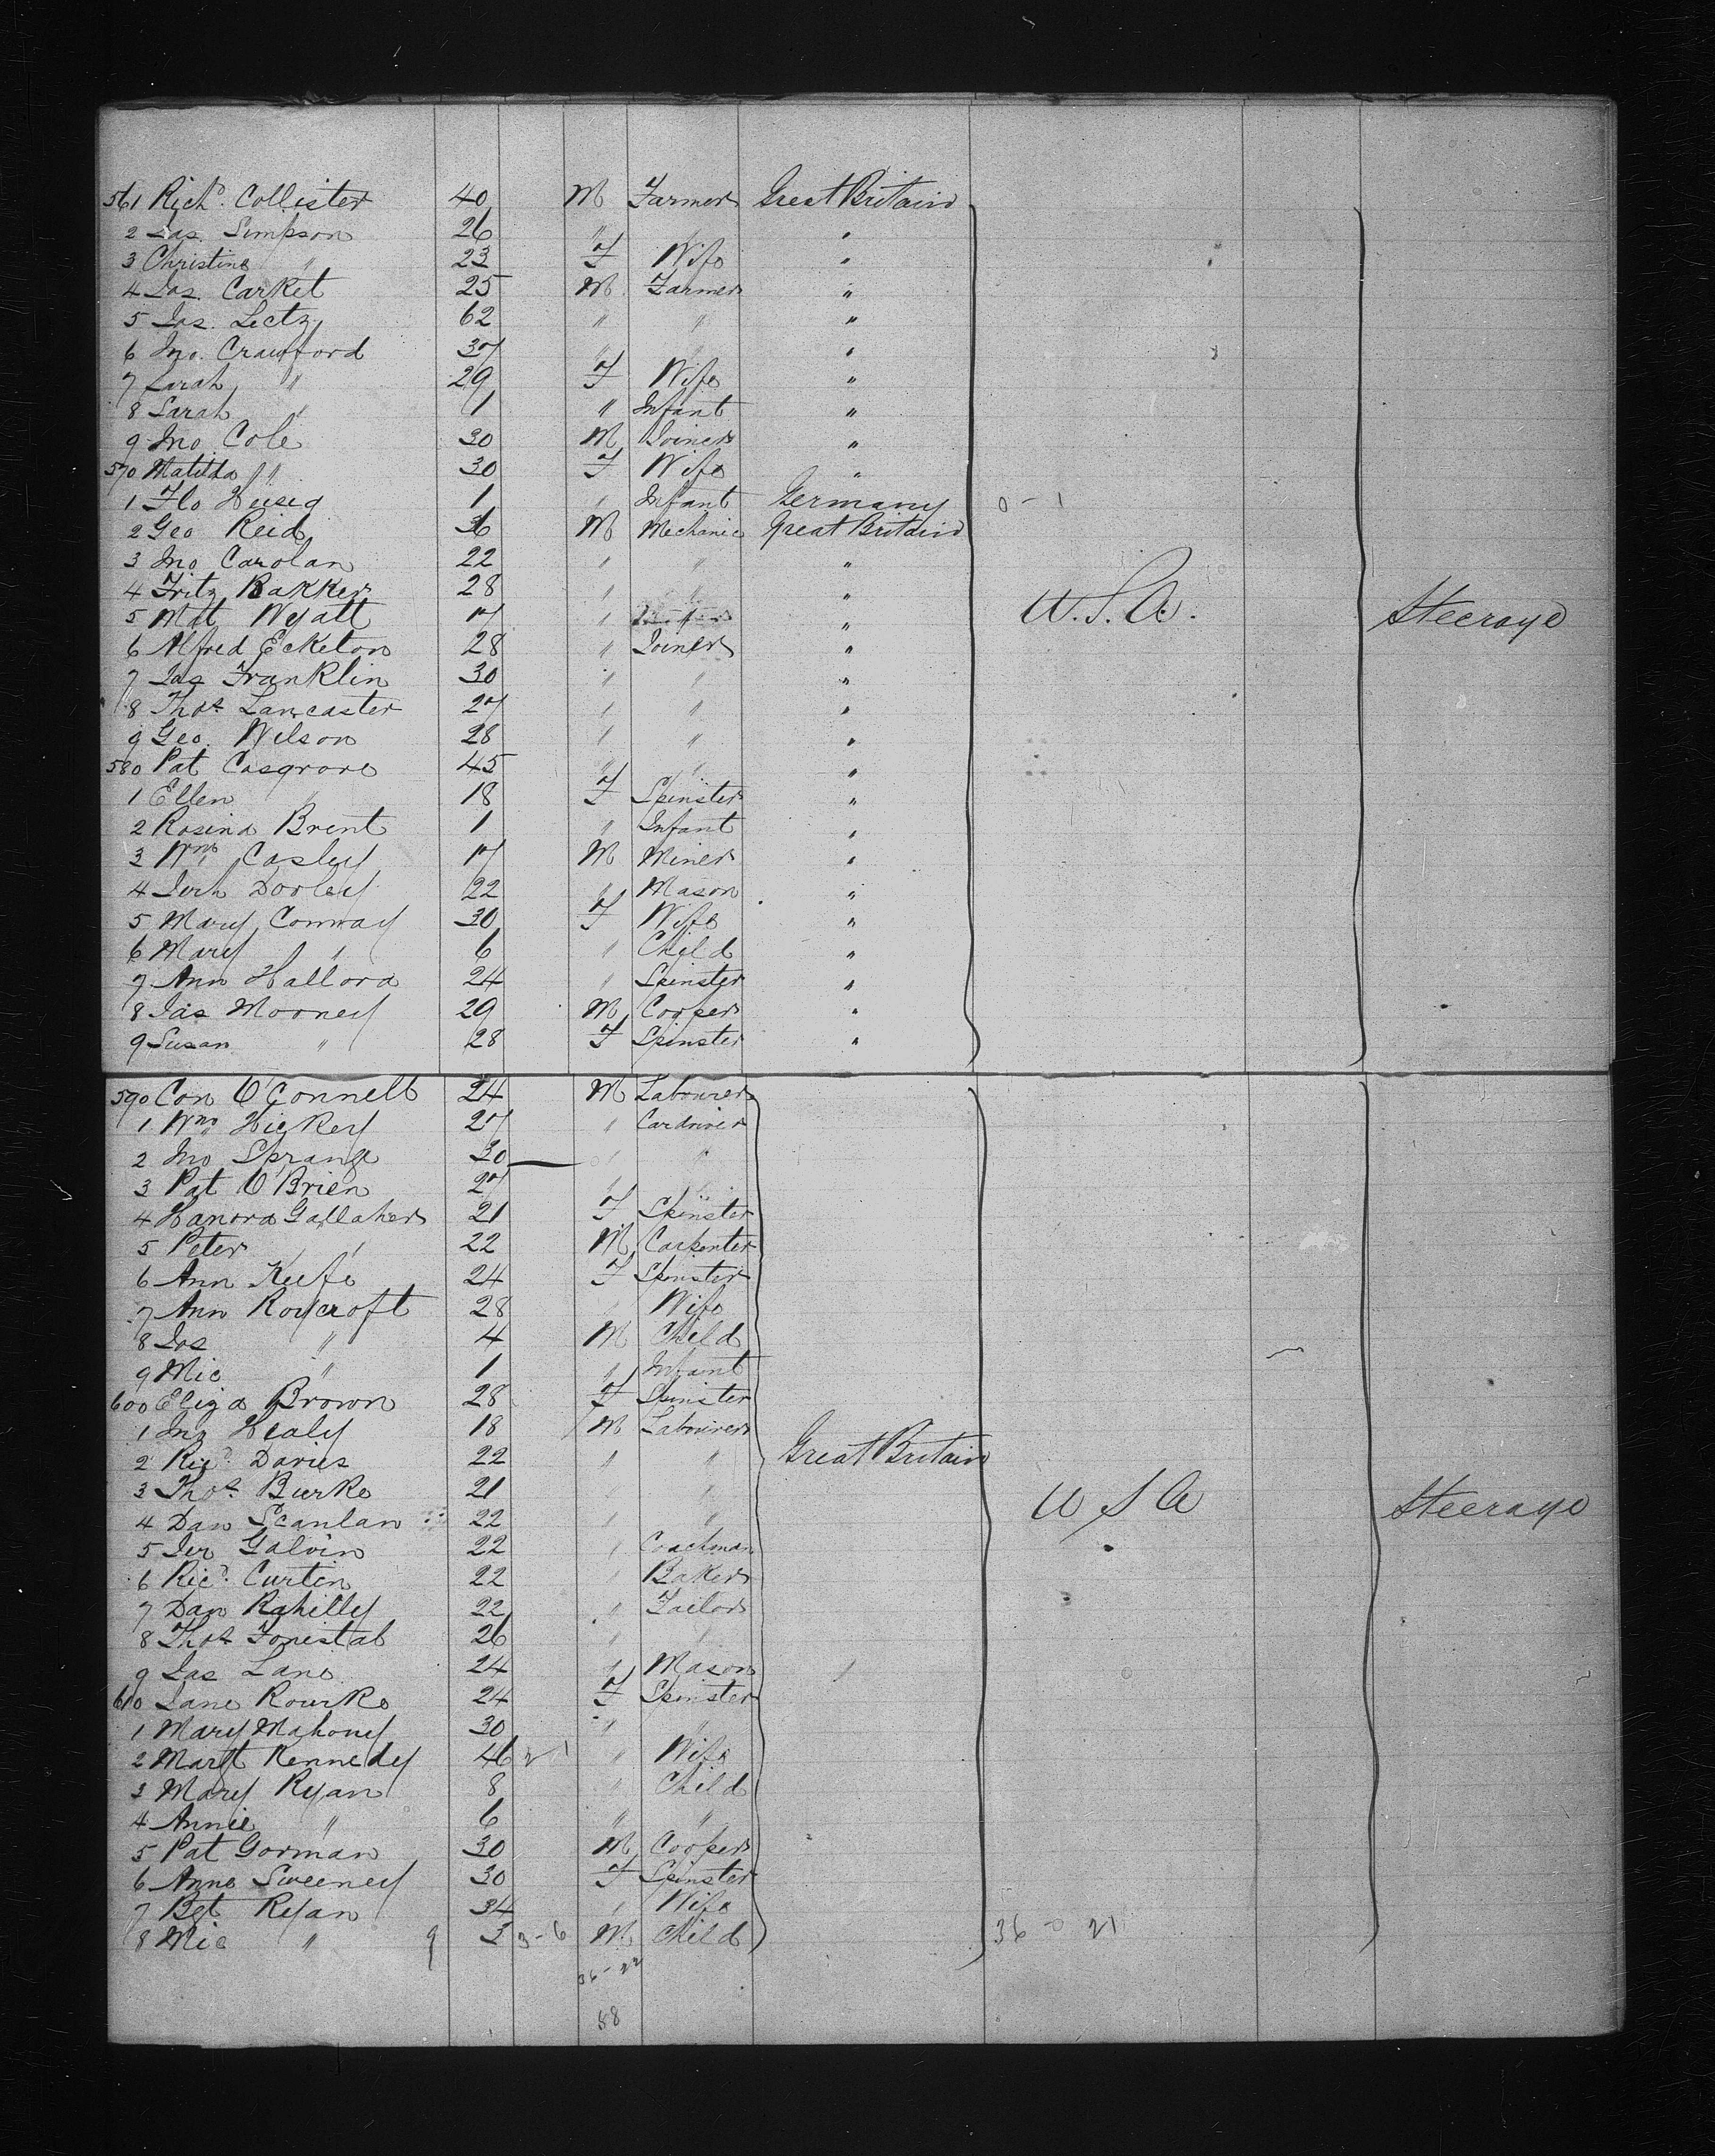 561 Richd. Collister 40 M Farmer Great Britain
2 Jas. Simpson 26 " " "
3 Christine " 23 F Wife "
4 Jas. Carket 25 M Farmer "
5 Jos. Lectz 62 " " "
6 Jno. Crawford 37 " " "
7 Sarah " 29 F Wife "
8 Sarah " 1 " Infant "
9 Jno Cole 30 M Joiner "
570 Matilda " 30 F Wife "
1 Flo Heiseg 1 " Infant Germany 0 - 1
2 Geo Reid 36 M Mechanic Great Britain
3 Jno Carolan 22 " " "
4 Fritz Bakker 28 " " "
5 Mtt Wyatt 17 " "
6 Alfred Ecketon 28 " Joiner "
7 Jas Franklin 30 " " "
8 Thos Lancaster 27 " " "
9 Geo. Wilson 28 " " "
580 Pat Cosgrove 45 " " "
1 Ellen " 18 F Spinster "
2 Rosina Brent 1 " Infant "
3 Wm Casley 17 M Miner "
4 Jerh Dorley 22 " Mason "
5 Mary Conway 30 F Wife "
6 Mary " 6 " Child "
7 Ann Hallora 24 " Spinster "
8 Jas Mooney 29 M Cooper "
9 Susan " 28 F Spinster "
U.S.A. Steerage
590 Con O'Connell 24 M Labourer
1 Wm Hickey 27 " Cardriver
2 Jno Sprange 30 " "
3 Pat O'Brien 27 " "
4 Hanora Gallaher 21 F Spinster
5 Peter " 22 M Carpenter
6 Ann Keefe 24 F Spinster
7 Ann Roycroft 28 " Wife
8 Jos " 4 M Child
9 Mic " 1 " Infant
600 Eliza Brown 28 F Spinster
1 Jno Healy 18 M Labourer
2 Ricd. Davies 22 " " Great Britain
3 Thos. Burke 21 " "
4 Dan Scanlan 22 " " U S A Steerage
5 Jer Galvin 22 " Coachman
6 Ricd. Curtin 22 " Baker
7 Dan Rahilly 22 " Tailor
8 Thos Forestal 26 " "
9 Jas Lane 24 " Mason
610 Jane Rourke 24 F Spinster
1 Mary Mahony 30 " "
2 Margt Kennedy 46 " Wife
3 Mary Ryan 8 " Child
4 Annie " 6 " "
5 Pat Gorman 30 M Cooper
6 Anne Sweeney 30 F Spinster
7 Bgt Ryan 34 " Wife
8 Mic " 9 3 3-6 M Child 36 - 0 21
36 - 22
58